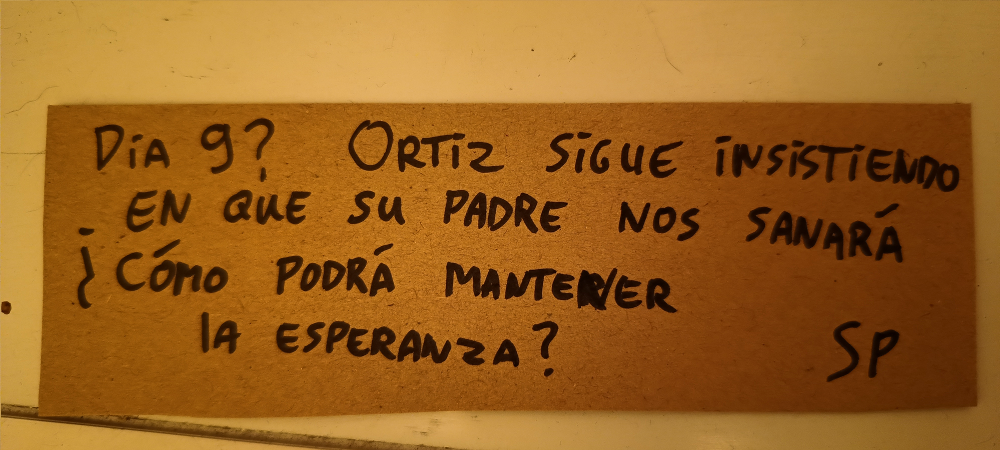 Día 9? ORTIZ SIGUE INSISTIENDO
EN QUE SU PADRE NOS SANARÁ
¿CÓMO PODRÁ MANTENER
LA ESPERANZA?
SP